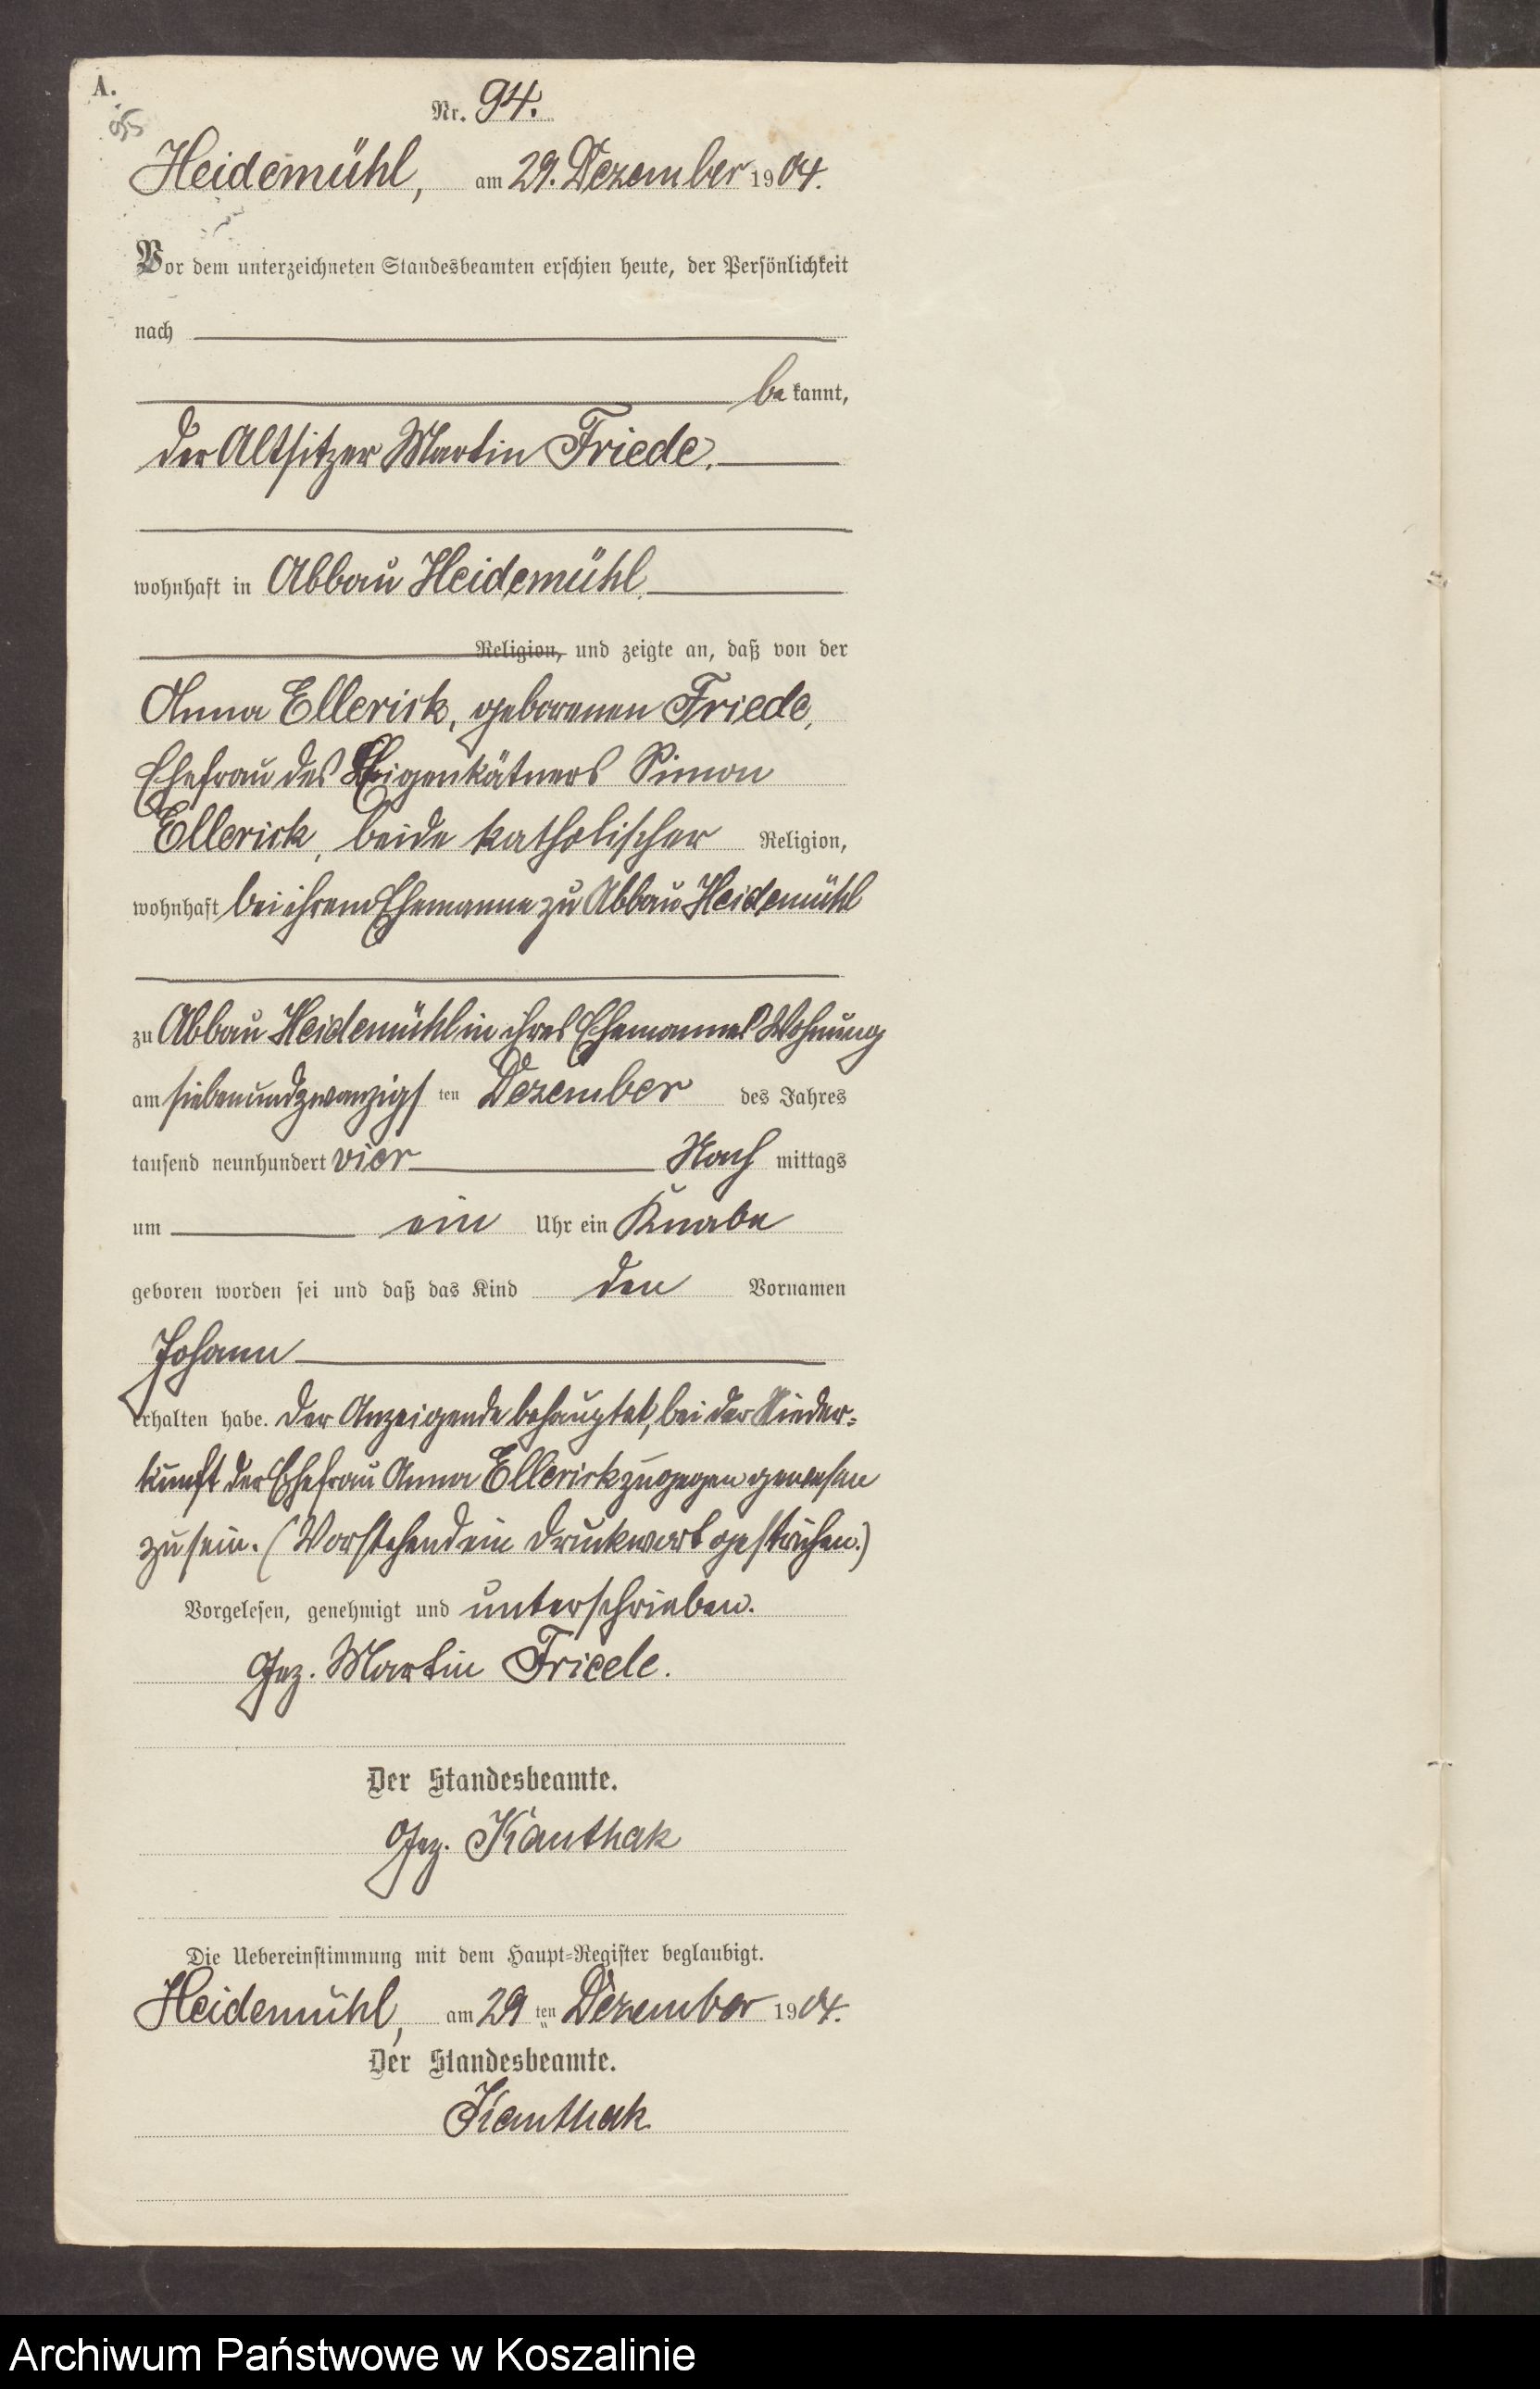 A.
95
Nr. 94.
Heidemühl, am 29. Dezember 1904.
Vor dem unterzeichneten Standesbeamten erschien heute, der Persönlichkeit
nach
be kannt,
der Altsitzer Martin Friede,
wohnhaft in Abbau Heidemühl,
Religion, und zeigte an, daß von der
Anna Ellerick, geborenen Friede,
Ehefrau des Eigenkätners Simon
Ellerick, beide katholischer Religion,
wohnhaft bei ihrem Ehemanne zu Abbau Heidemühl
zu Abbau Heidemühl in ihres Ehemannes Wohnung
am siebenundzwanzigs ten Dezember des Jahres
tausend neunhundert vier Nach mittags
um ein Uhr ein Knabe
geboren worden sei und daß das Kind den Vornamen
Johann
erhalten habe. Der Anzeigende behauptet, bei der Nieder-
kunft der Ehefrau Anna Ellerick zugegen gewesen
zu sein. (Vorstehend ein Druckwort gestrichen.)
Vorgelesen, genehmigt und unterschrieben.
Gez. Martin Friede.
Der Standesbeamte.
Gez. Kanthak
Die Uebereinstimmung mit dem Haupt-Register beglaubigt.
Heidemühl, am 29 ten Dezember 1904.
Der Standesbeamte.
Kanthak
Archiwum Państwowe w Koszalinie